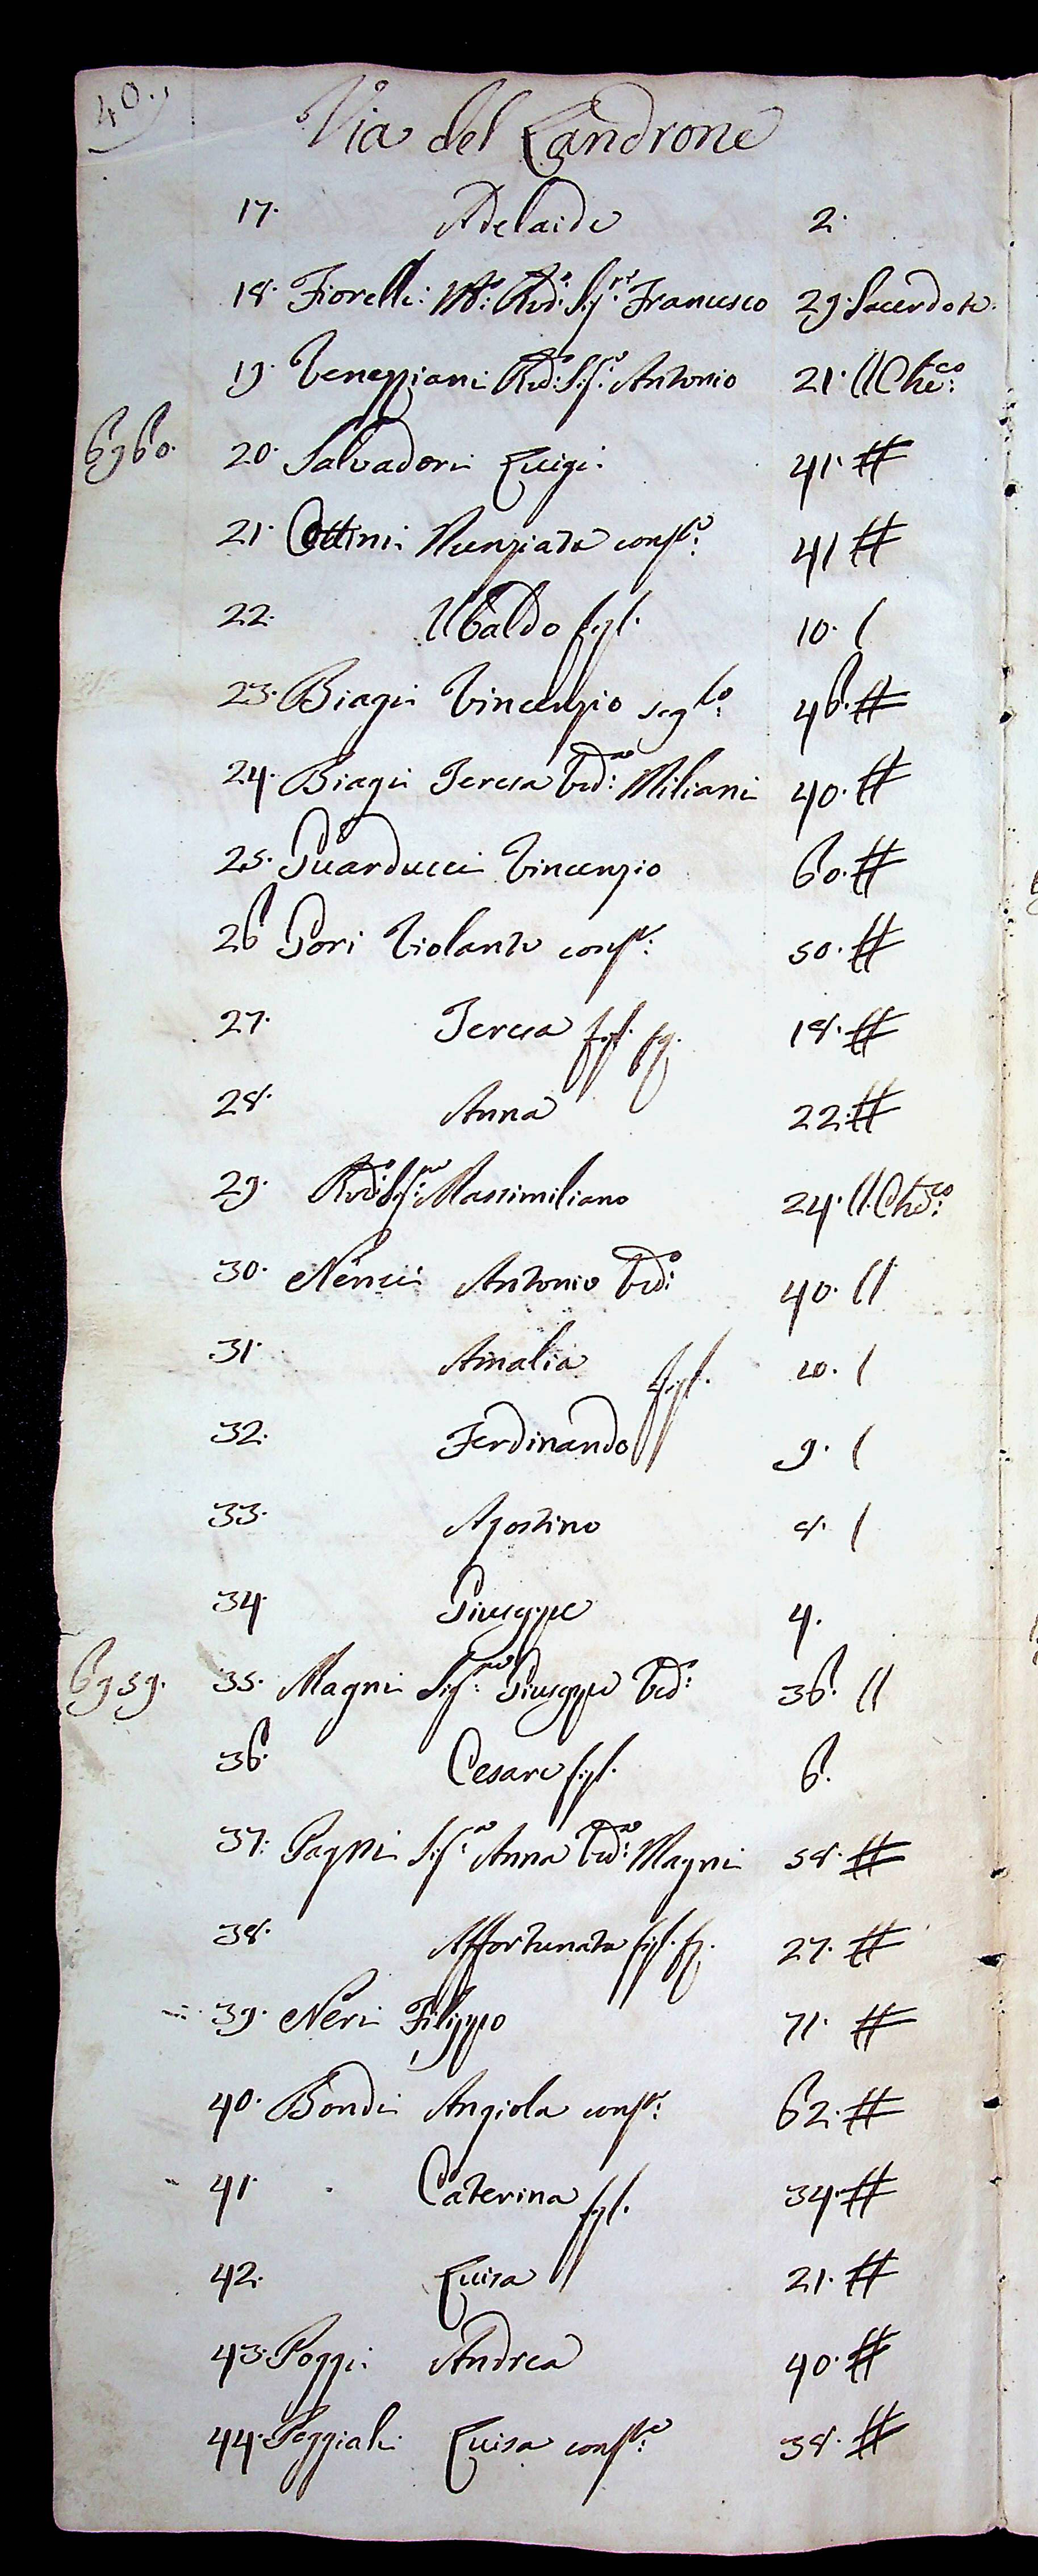 40.
Via del Landrone
17. Adelaide 2.
18. Fiorelli: M.o: Rvd.o: Sig.re: Francesco 29. Sacerdote.
19. Veneziani Rvd.o: Sig.e: Antonio 21. // Che.co:
6960. 20. Salvadori Luigi. 41. #
21. Cottini: Nunziata conf.e: 41 #
22. Ubaldo figl. 10. /
23. Biagi Vincenzio seg.lo: 46. #
24. Biagi Teresa Ved.a: Miliani 40. #
25. Guarducci Vincenzio 60. #
26 Gori Violante conf.e: 50. #
27. Teresa figl. 18. #
28. Anna 22. #
29. Rvd.o: Sig.e: Massimiliano 24. //. Che.co:
30. Nenci Antonio Ved.o: 40. //
31. Amalia figl. 10. /
32. Ferdinando 9. /
33. Agostino 8. /
34. Giuseppe 4.
6959. 35. Magni Sig.re: Giuseppe Ved.o: 36. //
36. Cesare figl. 6.
37: Pagni Sig.a: Anna Ved.a: Magni 58. #
38. Affortunata figl. 27. #
39. Neri Filippo 71. #
40. Bondi Angiola conf.e: 62. #
41. Caterina figl. 34. #
42. Luisa 21. #
43. Poggi. Andrea 40. #
44. Poggiali Luisa conf.e: 38. #